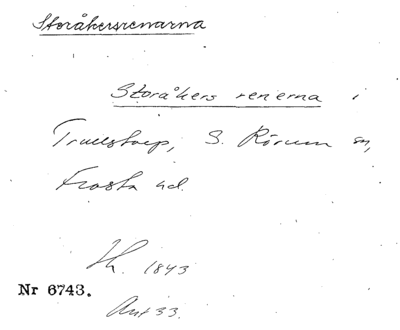 Storåkersrenarna
Storåkers renerna i
Truedstorp, S. Rörum sn,
Frosta hd.
1843
Nr 6743.
Ant 33.